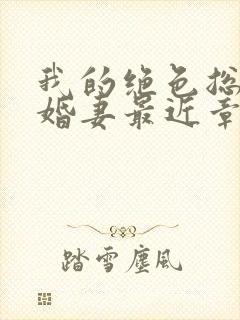 我的绝色总
婚妻最近章
踏雪尘风